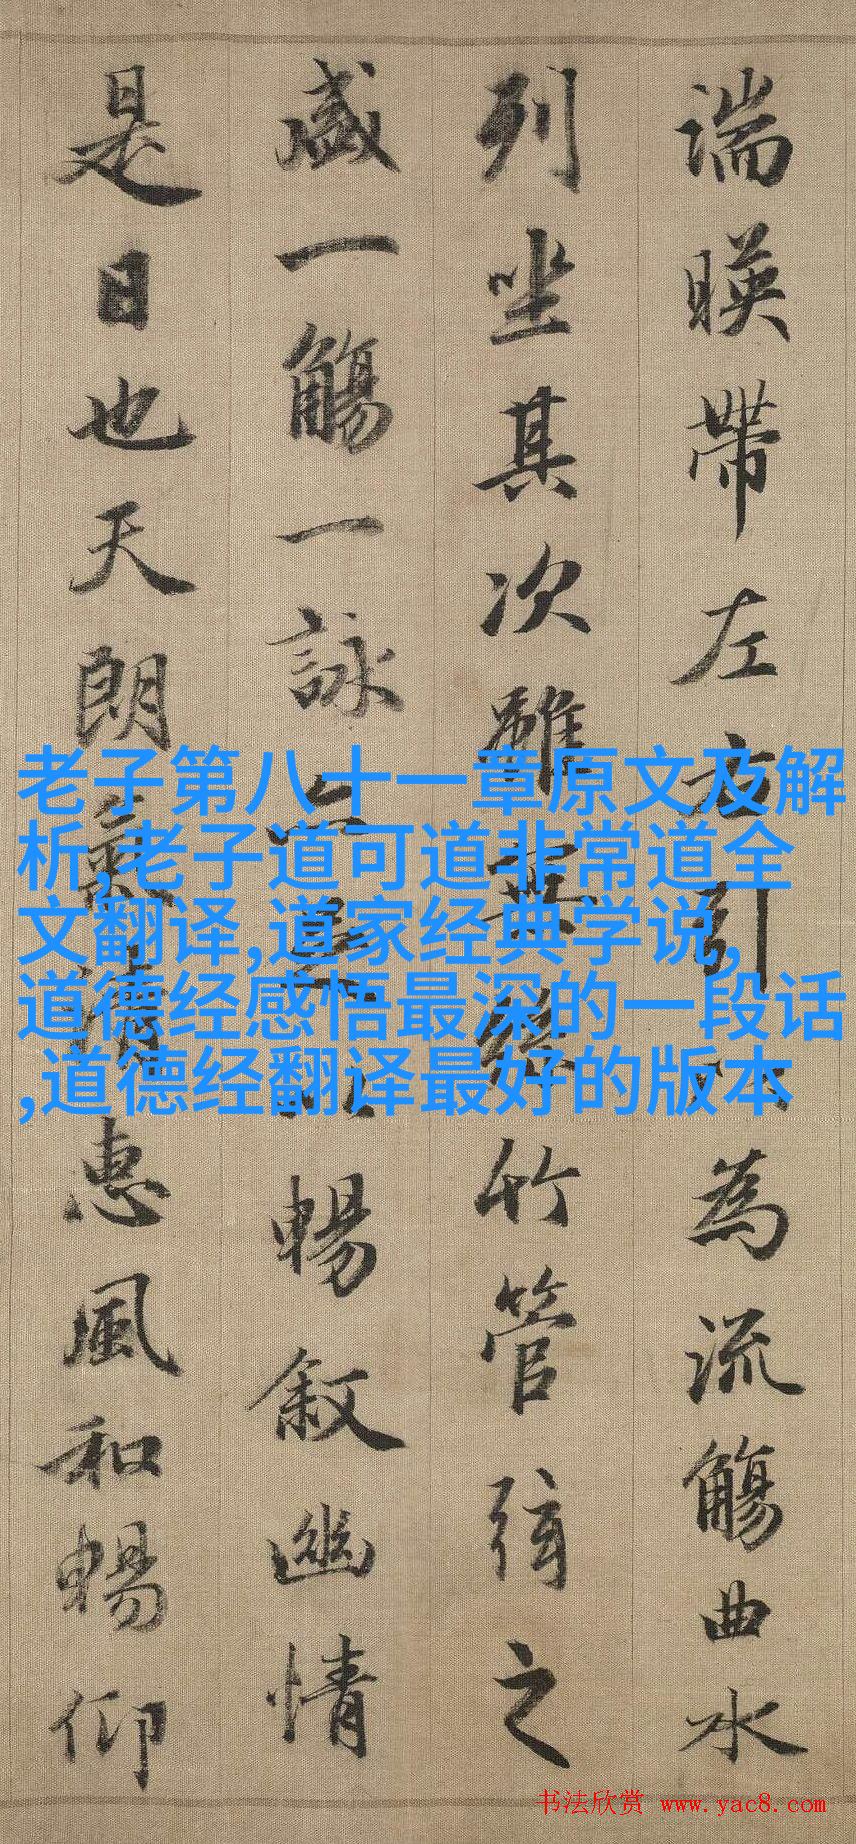 湍暎帶左右引以為流觴曲水
列坐其次雖無絲竹管弦之
盛一觴一詠亦足以暢叙幽情
是日也天朗氣清惠風和暢仰
老子第八十一章原文及解
析,老子道可道非常道全
文翻译,道家经典学说,
道德经感悟最深的一段话
,道德经翻译最好的版本
书法欣赏 www.yac8.com